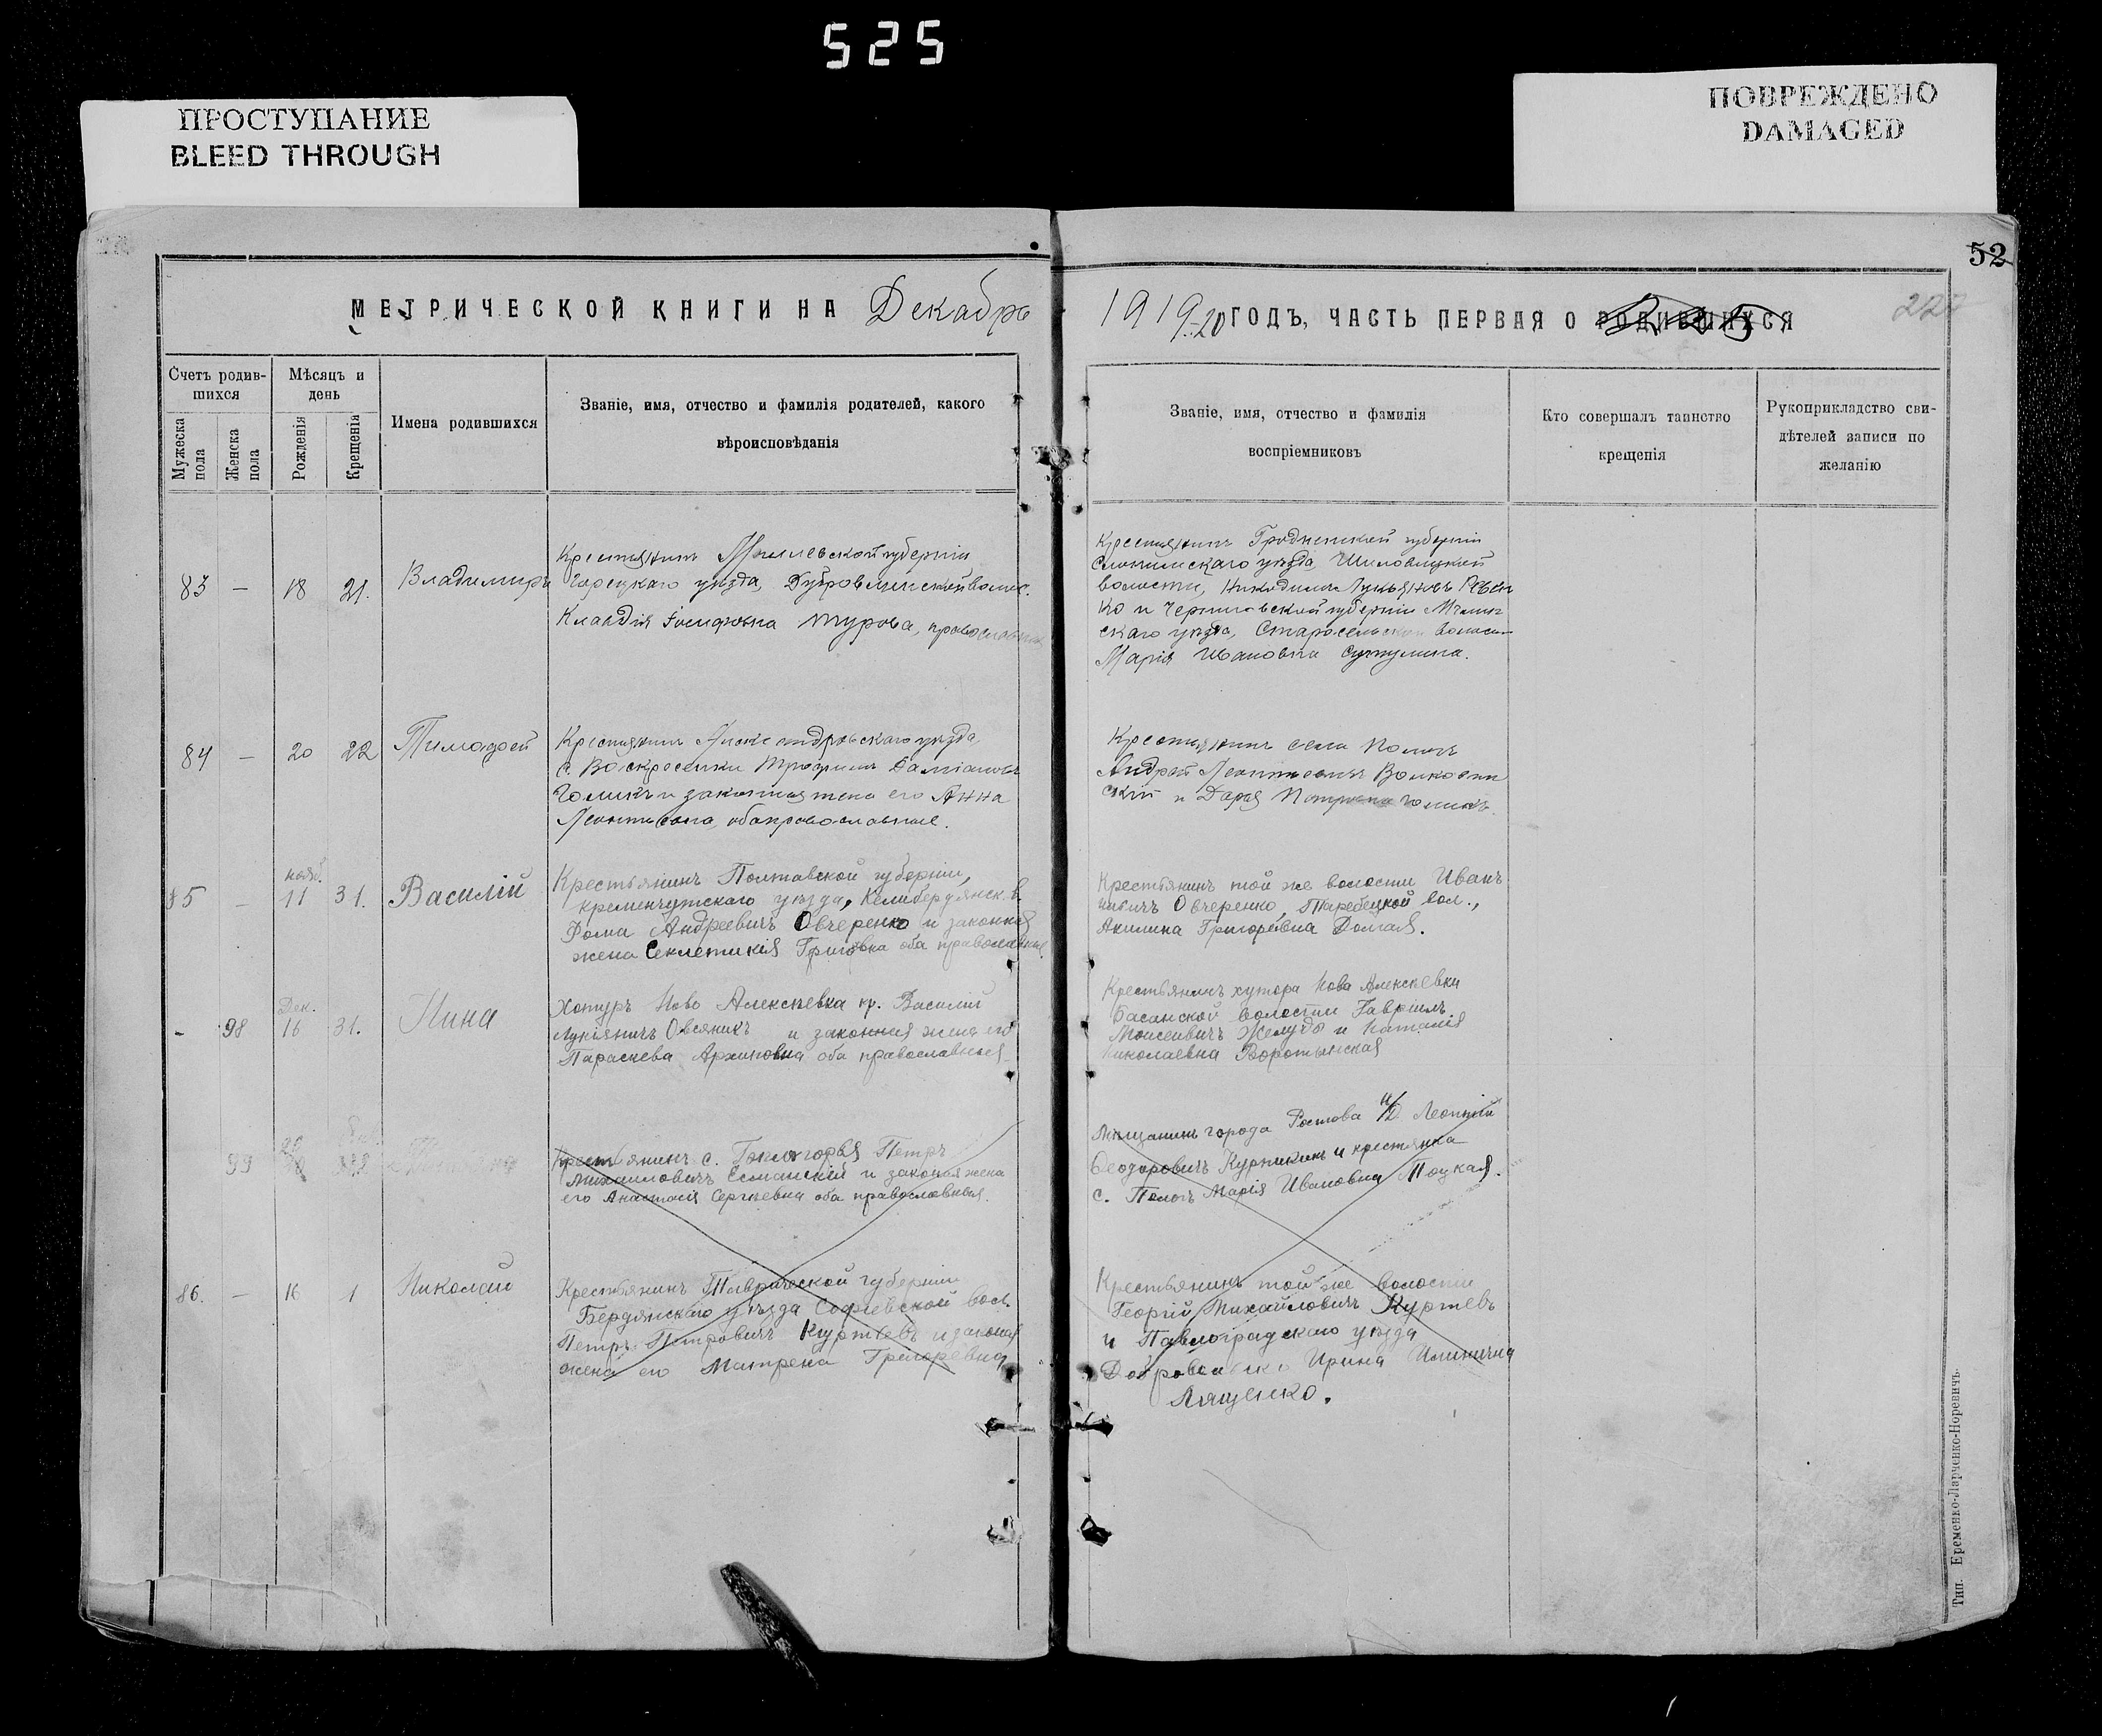 525
ПРОСТУПАНИЕ
BLEED THROUGH
ПОВРЕЖДЕНО
DAMAGED
52
227
МЕТРИЧЕСКОЙ КНИГИ НА Декабрь
1919-20 ГОДЪ, ЧАСТЬ ПЕРВАЯ О РОДИВШИХСЯ
Счетъ родив-
шихся
Мужеска
пола
Женска
пола
Мѣсяцъ и
день
Рожденія
Крещенія
Имена родившихся
Званіе, имя, отчество и фамилія родителей, какого
вѣроисповѣданія
Званіе, имя, отчество и фамилія
воспріемниковъ
Кто совершалъ таинство
крещенія
Рукоприкладство сви-
дѣтелей записи по
желанію
83 — 18 21. Владимиръ
Крестьянинъ Могилевской губерніи
Горецкаго уѣзда, волос.
Клавдія Іосифовна Турова, православная
Крестьянинъ Гродненской губерніи
Слонимскаго уѣзда, Шиловицкой
волости, Никодимъ Лукьяновъ
и Черниговской губерніи Мглин
скаго уѣзда, Старосельской волости
Марія Ивановна
84 — 20 22 Тимофей
Крестьянинъ Александровскаго уѣзда,
с. Воскресенки Трофимъ Даміановъ
Голикъ и законная жена его Анна
Леонтьевна, оба православные.
Крестьянинъ села Пологъ
Андрей Леонтьевичъ
и Дарья Петровна Голикъ.
85 — нояб. 11 31. Василій
Крестьянинъ Полтавской губерніи,
Кременчугскаго уѣзда, Келибердянск. в.
Фома Андреевичъ Овчеренко и законная
жена Секлетикія оба православные
Крестьянинъ той же волости Иванъ
Овчеренко, вол.,
Акилина Григорьевна Долгая.
- 98 Дек. 16 31. Нина
Хуторъ Ново Алексѣевка кр. Василій
Лукіяничъ Овсяникъ и законная жена его
Параскева Архиповна оба православныя
Крестьянинъ хутора Ново Алексѣевки
Басанской волости Гавріилъ
Моисеевичъ Желудь и Наталія
Николаевна Воротынская
99
Крестьянинъ с. Петръ
Михаиловичъ и законная жена
его Анастасія Сергѣевна оба православныя.
Мѣщанинъ города Ростова н/Д. Леонтій
Феодоровичъ Курпикинъ и крестьянка
с. Пологъ Марія Ивановна Поцкая.
86. — 16 1 Николай
Крестьянинъ Таврической губерніи
Бердянскаго уѣзда Софіевской вол.
Петръ Петровичъ Куртевъ и законая
жена его Матрена Григоревна
Крестьянинъ той же волости
Георгій Михайловичъ Куртевъ
и Павлоградскаго уѣзда
Ирина Илинична
Лященко.
Тип. Еременко-Ларченко-Норевичъ.